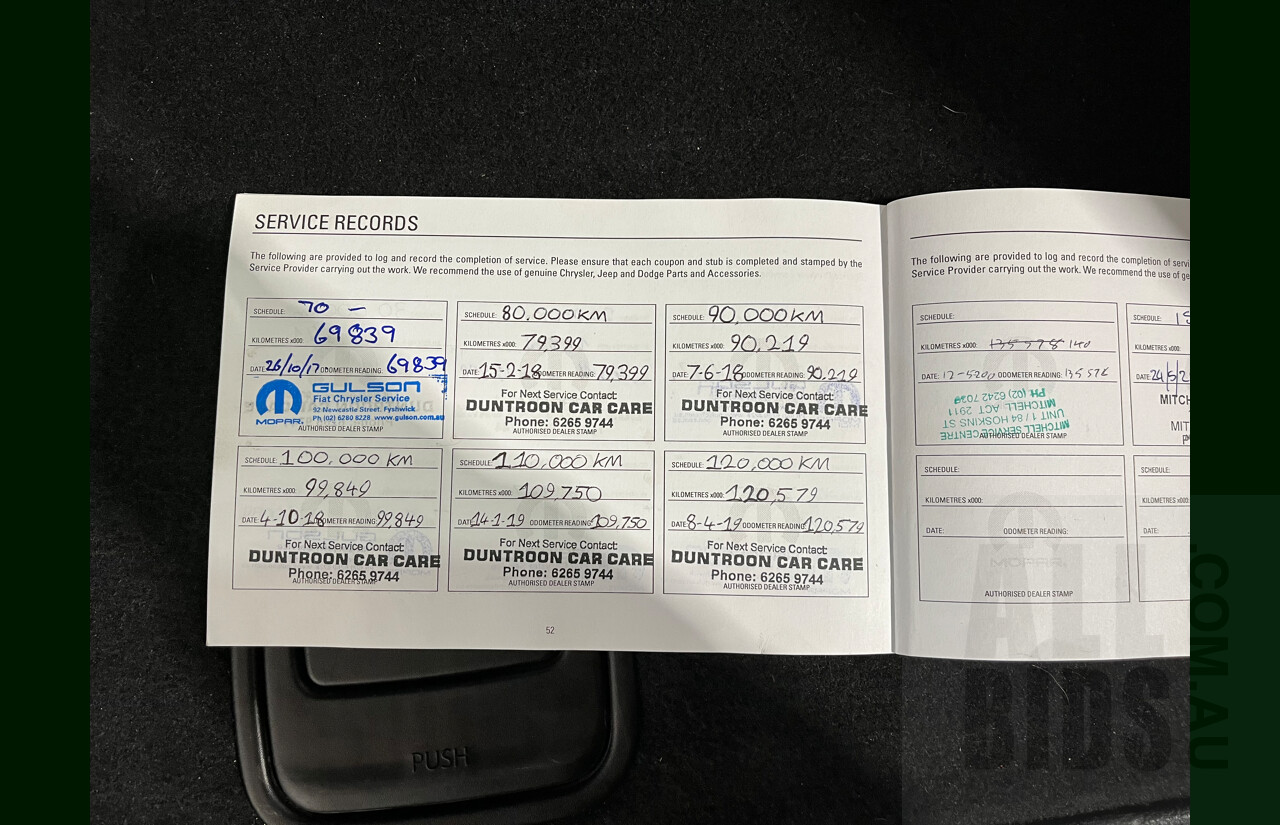 SERVICE RECORDS
The following are provided to log and record the completion of service. Please ensure that each coupon and stub is completed and stamped by the
Service Provider carrying out the work. We recommend the use of genuine Chrysler, Jeep and Dodge Parts and Accessories.
SCHEDULE: 70 -
KILOMETRES x000: 69839
DATE: 26/10/17 ODOMETER READING: 69839
GULSON
Fiat Chrysler Service
92 Newcastle Street, Fyshwick
Ph (02) 6280 8228 www.gulson.com.au
MOPAR.
AUTHORISED DEALER STAMP
SCHEDULE: 80,000KM
KILOMETRES x000: 79399
DATE: 15-2-18 ODOMETER READING: 79,399
For Next Service Contact:
DUNTROON CAR CARE
Phone: 6265 9744
AUTHORISED DEALER STAMP
SCHEDULE: 90,000KM
KILOMETRES x000: 90,219
DATE: 7-6-18 ODOMETER READING: 90,219
For Next Service Contact:
DUNTROON CAR CARE
Phone: 6265 9744
AUTHORISED DEALER STAMP
SCHEDULE: 100,000 KM
KILOMETRES x000: 99,849
DATE: 4-10-18 ODOMETER READING: 99,849
For Next Service Contact:
DUNTROON CAR CARE
Phone: 6265 9744
AUTHORISED DEALER STAMP
SCHEDULE: 110,000 KM
KILOMETRES x000: 109,750
DATE: 14-1-19 ODOMETER READING: 109,750
For Next Service Contact:
DUNTROON CAR CARE
Phone: 6265 9744
AUTHORISED DEALER STAMP
SCHEDULE: 120,000 KM
KILOMETRES x000: 120,579
DATE: 8-4-19 ODOMETER READING: 120,579
For Next Service Contact:
DUNTROON CAR CARE
Phone: 6265 9744
AUTHORISED DEALER STAMP
52
The following are provided to log and record the completion of servi
Service Provider carrying out the work. We recommend the use of ge
SCHEDULE:
KILOMETRES x000: 140
DATE: ODOMETER READING:
MITCHELL SERVICE CENTRE
UNIT 1 / 84 HOSKINS ST
MITCHELL ACT 2911
PH (02) 6242
AUTHORISED DEALER STAMP
SCHEDULE:
KILOMETRES x000:
DATE: 24/5/2
MITCH
MIT
SCHEDULE:
KILOMETRES x000:
DATE: ODOMETER READING:
AUTHORISED DEALER STAMP
SCHEDULE:
KILOMETRES x000:
DATE:
PUSH
ALL
BIDS
.COM.AU